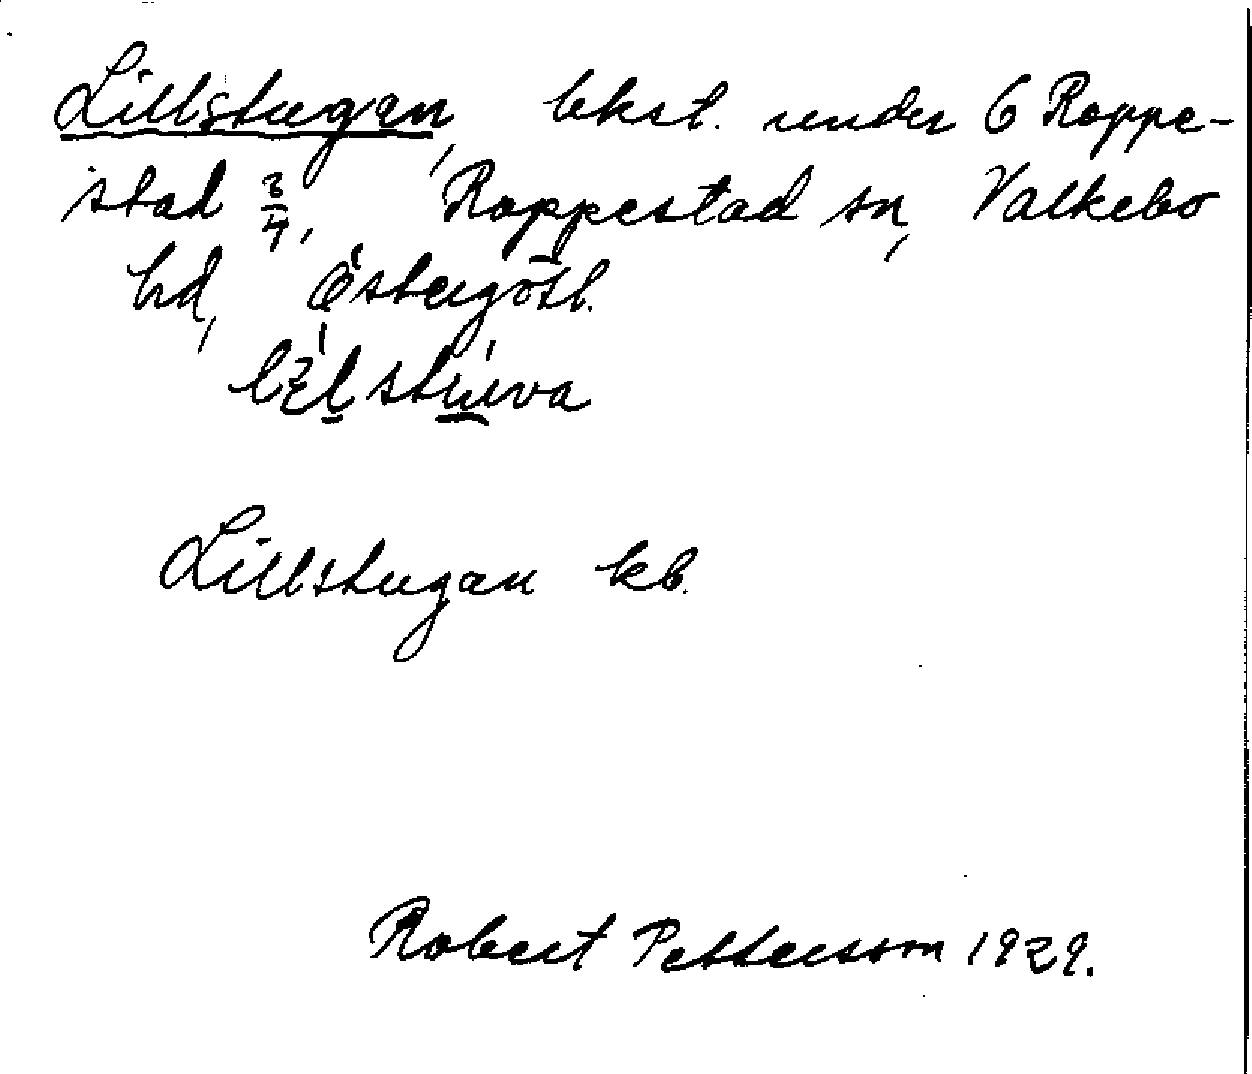 Lillstugan, lkst. under 6 Rappe-
stad 3/4, Rappestad sn, Valkebo
hd, Östergötl.
Lillstugan kb.
Robert Pettersson 1929.